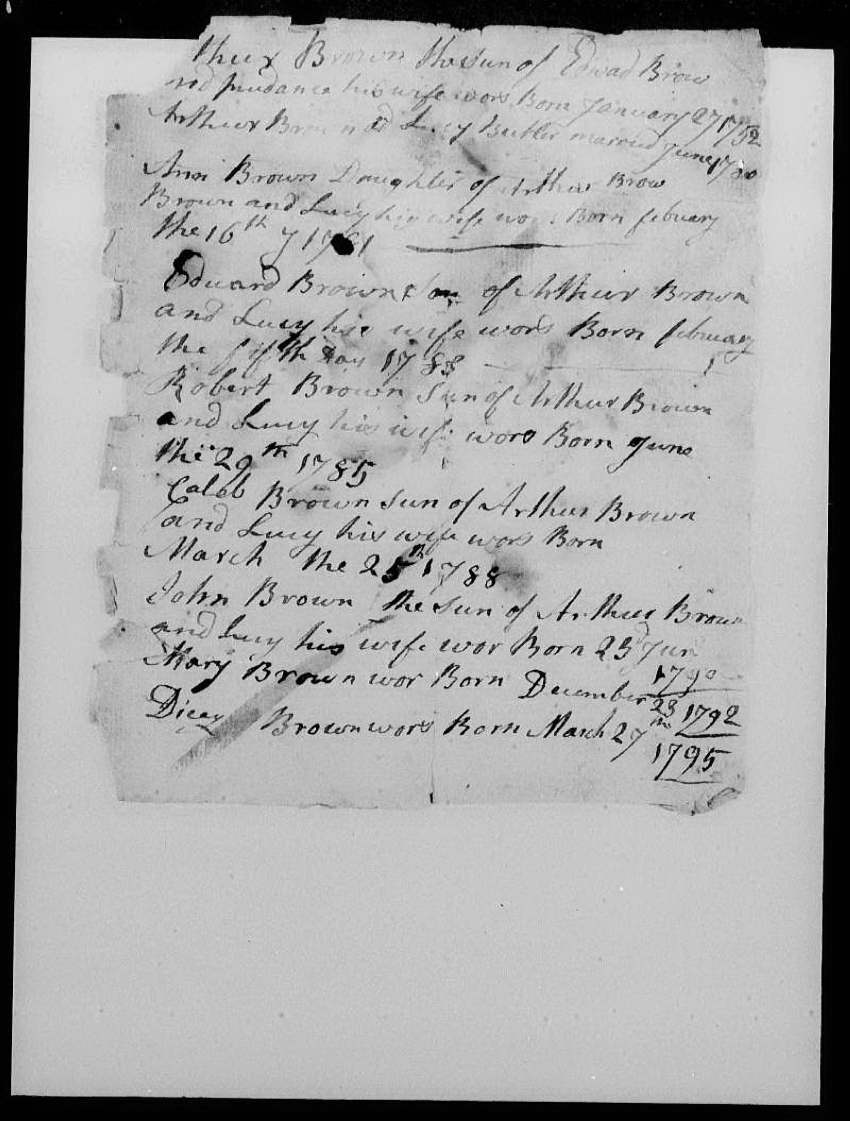 thur Brown the Sun of Edwad Brow
nd prudance his wife wors Born January 27 1752
Arthur Brown ad Lucy Butler maroied June 1780
Ann Brown Daughter of Arthur Brow
Brown and Lucy his wife wors Born febuary
the 16th 1781
Edward Brown Son of Arthur Brown
and Lucy his wife wors Born february
the fifth Day 1783
Robert Brown Sun of Arthur Brown
and Lucy his wife wors Born June
the 29th 1785
Caleb Brown Sun of Arthur Brown
and Lucy his wife wors Born
March the 25th 1788
John Brown the Sun of Arthur Brown
and Lucy his wife wor Born 25 Jun
1790
Mary Brown wor Born December 23 1792
Dicey Brown wors Born March 27
1795